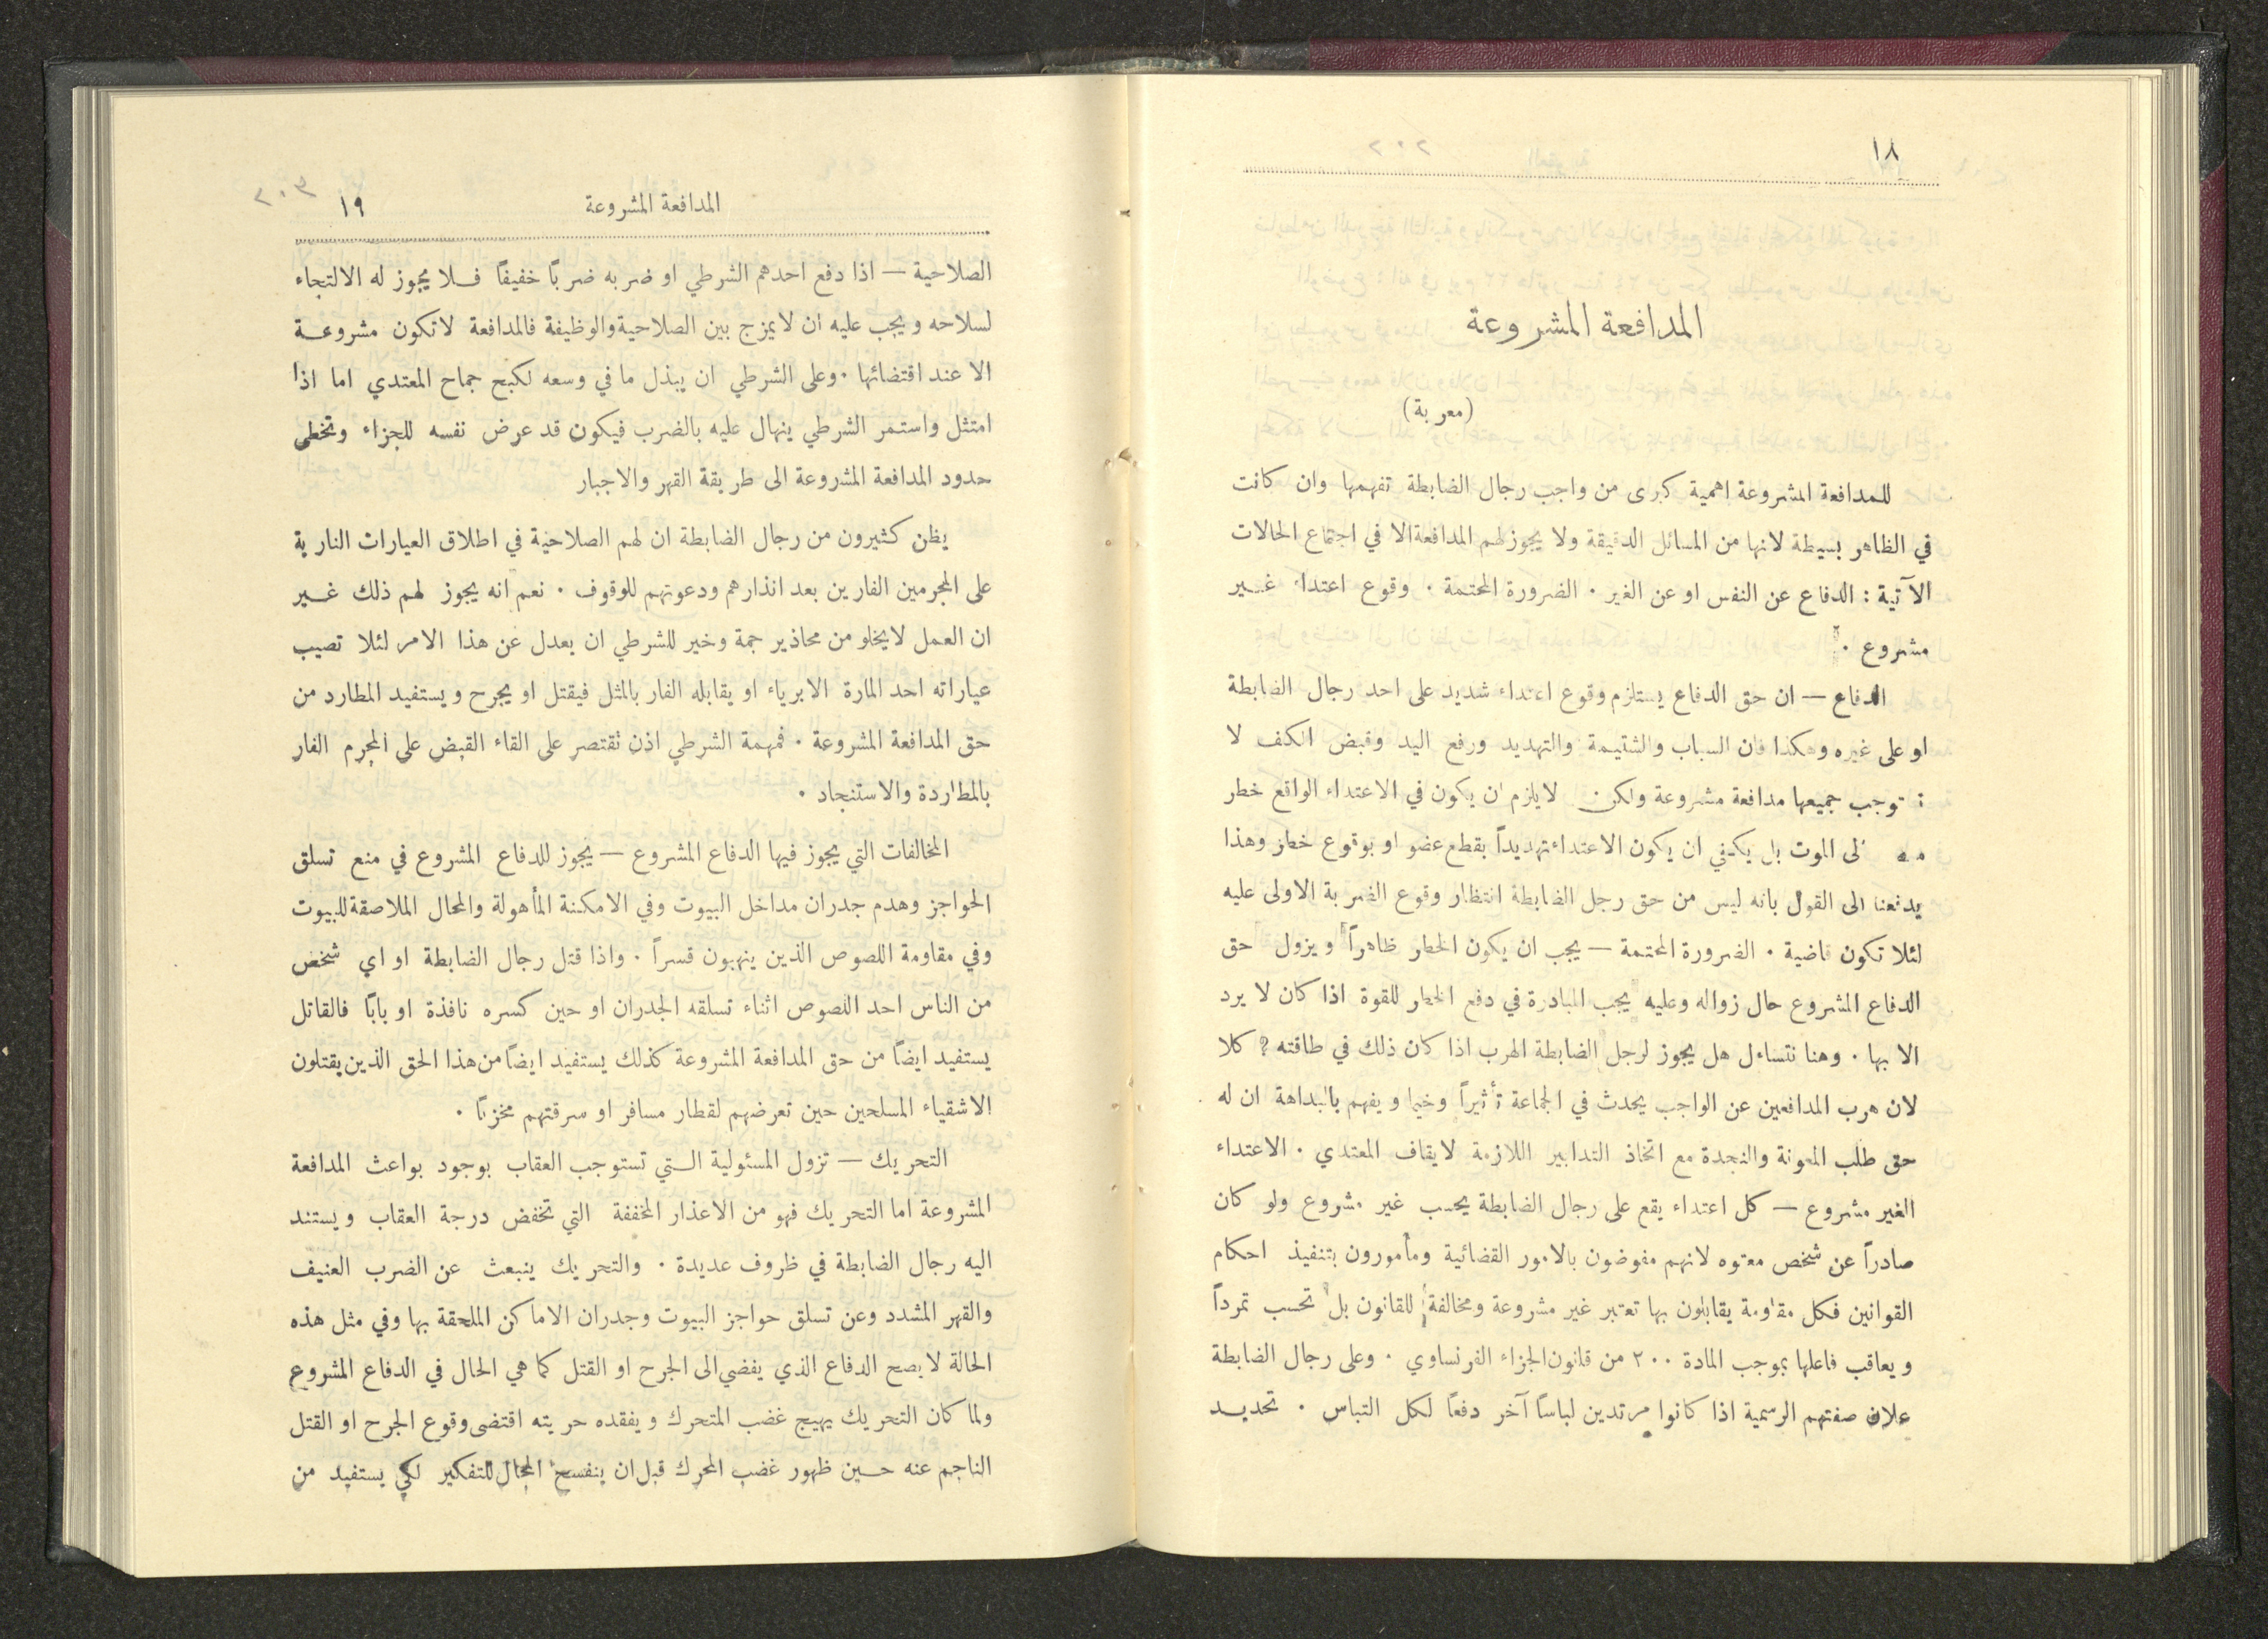 ١٨
المدافعة المشروعة
(معربة)
للمدافعة المشروعة اهمية كبرى من واجب رجال الضابطة تفهمها وان كانت
في الظاهر بسيطة لانها من المسائل الدقيقة ولا يجوز لهم المدافعة الا في اجتماع الحالات
الآتية : الدفاع عن النفس او عن الغير . الضرورة المحتمة . وقوع اعتداء غير
مشروع .
الدفاع — ان حق الدفاع يستلزم وقوع اعتداء شديد على احد رجال الضابطة
او على غيره وهكذا فان السباب والشتيمة والتهديد ورفع اليد وقبض الكف لا
توجب جميعها مدافعة مشروعة ولكن لا يلزم ان يكون في الاعتداء الواقع خطر
الى الموت بل يكفي ان يكون الاعتداء تهديداً بقطع عضو او بوقوع خطر وهذا
يدفعنا الى القول بانه ليس من حق رجل الضابطة انتظار وقوع الضربة الاولى عليه
لئلا تكون قاضية . الضرورة المحتمة — يجب ان يكون الخطر ظاهراً ويزول حق
الدفاع المشروع حال زواله وعليه يجب المبادرة في دفع الخطر للقوة اذا كان لا يرد
الا بها . وهنا نتساءل هل يجوز لرجل الضابطة الهرب اذا كان ذلك في طاقته ? كلا
لان هرب المدافعين عن الواجب يحدث في الجماعة تأثيراً وخيما ويفهم بالبداهة ان له
حق طلب المعونة والنجدة مع اتخاذ التدابير اللازمة لايقاف المعتدي . الاعتداء
الغير مشروع — كل اعتداء يقع على رجال الضابطة يحسب غير مشروع ولو كان
صادراً عن شخص معتوه لانهم مفوضون بالامور القضائية ومأمورون بتنفيذ احكام
القوانين فكل مقاومة يقابلون بها تعتبر غير مشروعة ومخالفة للقانون بل تحسب تمرداً
ويعاقب فاعلها بموجب المادة ٢٠٠ من قانون الجزاء الفرنساوي . وعلى رجال الضابطة
علان صفتهم الرسمية اذا كانوا مرتدين لباساً آخر دفعاً لكل التباس . تحديد
٢٠٣
المدافعة المشروعة ١٩
الصلاحية — اذا دفع احدهم الشرطي او ضربه ضرباً خفيفاً فلا يجوز له الالتجاء
لسلاحه ويجب عليه ان لا يمزج بين الصلاحية والوظيفة فالمدافعة لا تكون مشروعة
الا عند اقتضائها . وعلى الشرطي ان يبذل ما في وسعه لكبح جماح المعتدي اما اذا
امتثل واستمر الشرطي ينهال عليه بالضرب فيكون قد عرض نفسه للجزاء وتخطى
حدود المدافعة المشروعة الى طريقة القهر والاجبار
يظن كثيرون من رجال الضابطة ان لهم الصلاحية في اطلاق العيارات النارية
على المجرمين الفارين بعد انذارهم ودعوتهم للوقوف . نعم انه يجوز لهم ذلك غير
ان العمل لا يخلو من محاذير جمة وخير للشرطي ان يعدل عن هذا الامر لئلا تصيب
عياراته احد المارة الابرياء او يقابله الفار بالمثل فيقتل او يجرح ويستفيد المطارد من
حق المدافعة المشروعة . فمهمة الشرطي اذن تقتصر على القاء القبض على المجرم الفار
بالمطاردة والاستنجاد .
المخالفات التي يجوز فيها الدفاع المشروع — يجوز للدفاع المشروع في منع تسلق
الحواجز وهدم جدران مداخل البيوت وفي الامكنة المأهولة والمحال الملاصقة للبيوت
وفي مقاومة اللصوص الذين ينهبون قسراً . واذا قتل رجال الضابطة او اي شخص
من الناس احد اللصوص اثناء تسلقه الجدران او حين كسره نافذة او باباً فالقاتل
يستفيد ايضاً من حق المدافعة المشروعة كذلك يستفيد ايضاً من هذا الحق الذين يقتلون
الاشقياء المسلحين حين تعرضهم لقطار مسافر او سرقتهم مخزناً .
التحريك — تزول المسئولية التي تستوجب العقاب بوجود بواعث المدافعة
المشروعة اما التحريك فهو من الاعذار المخففة التي تخفض درجة العقاب ويستند
اليه رجال الضابطة في ظروف عديدة . والتحريك ينبعث عن الضرب العنيف
والقهر المشدد وعن تسلق حواجز البيوت وجدران الاماكن الملحقة بها وفي مثل هذه
الحالة لا يصح الدفاع الذي يفضي الى الجرح او القتل كما هي الحال في الدفاع المشروع
ولما كان التحريك يهيج غضب المتحرك ويفقده حريته اقتضى وقوع الجرح او القتل
الناجم عنه حين ظهور غضب المحرك قبل ان ينفسح المجال للتفكير لكي يستفيد من